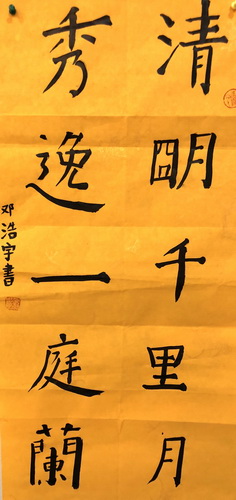 清朙千里月
秀逸一庭蘭
邓浩宇書